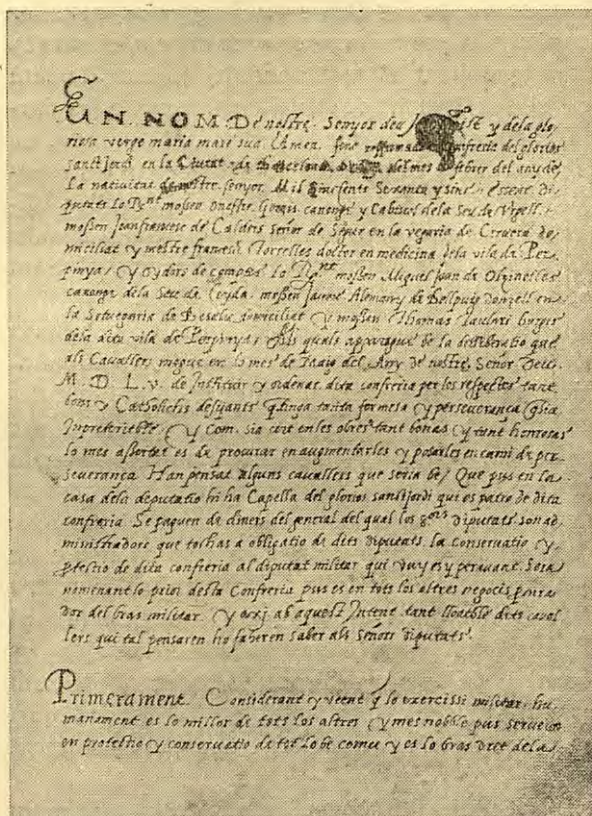 EN NOM De nostre Senyor deu y dela glo,
riosa verge maria mare sua Amen. fonc confreria del glorios
sanct Jordi en la Ciutat de del mes de febrer del any de
La nativitat de nostre senyor Mil Sinchcents Sexanta y sinc essent Di,
putats lo mossen canonge y de la Seu de
mossen Joan frances de Calders señor de Segur en la vegaria de Cervera do,
miciliat y mestre frances Torrelles doctor en medicina dela vila de Per
pinya, y oydors de comptes lo mossen Miguel Joan de
canonge dela Seu de Leyda. mossen Jaume Alemany de Bellpuig Donzell en
la Sotvegaria de Besalu domiciliat y mossen Thomas burges
dela dita vila de Perpinya, Als quals apparague de la deliberatio que
als Cavallers mogue en lo mes de Maig del Any De nostre Señor Deu
M. D. L. v. de Instituir y ordenar dita confreria per los respectes tant
bons y Catholichs desijants q tinga tanta fermesa y perseverança q sia
y Com sia cert en les obres tant bonas y tant honrosas
lo mes es de procurar en augmentarles y posarles en cami de per
severança Han pensat alguns cavallers que seria be, Que pus en la
casa dela deputatio hi ha Capella del glorios sanct jordi qui es patro de dita
confreria Se paguen de diners del general del qual los Diputats son ad,
ministradors que tochas a obligatio de dits Diputats la Conservatio y
ptectio de dita confreria al diputat militar qui vuy es y peravant Sera
nomenantlo prior desta Confreria pus es en tots los altres negocis
dor del bras militar y axi ab aquest Intent tant lloable dits caval
lers qui tal pensaren ho faheren saber als Señors Diputats
Primerament Considerant y veent q lo exercissi militar hu,
manament es lo millor de tots los altres y mes noble pus serveix
en protectio y conservatio de tot lo be comu y es lo bras dret dela